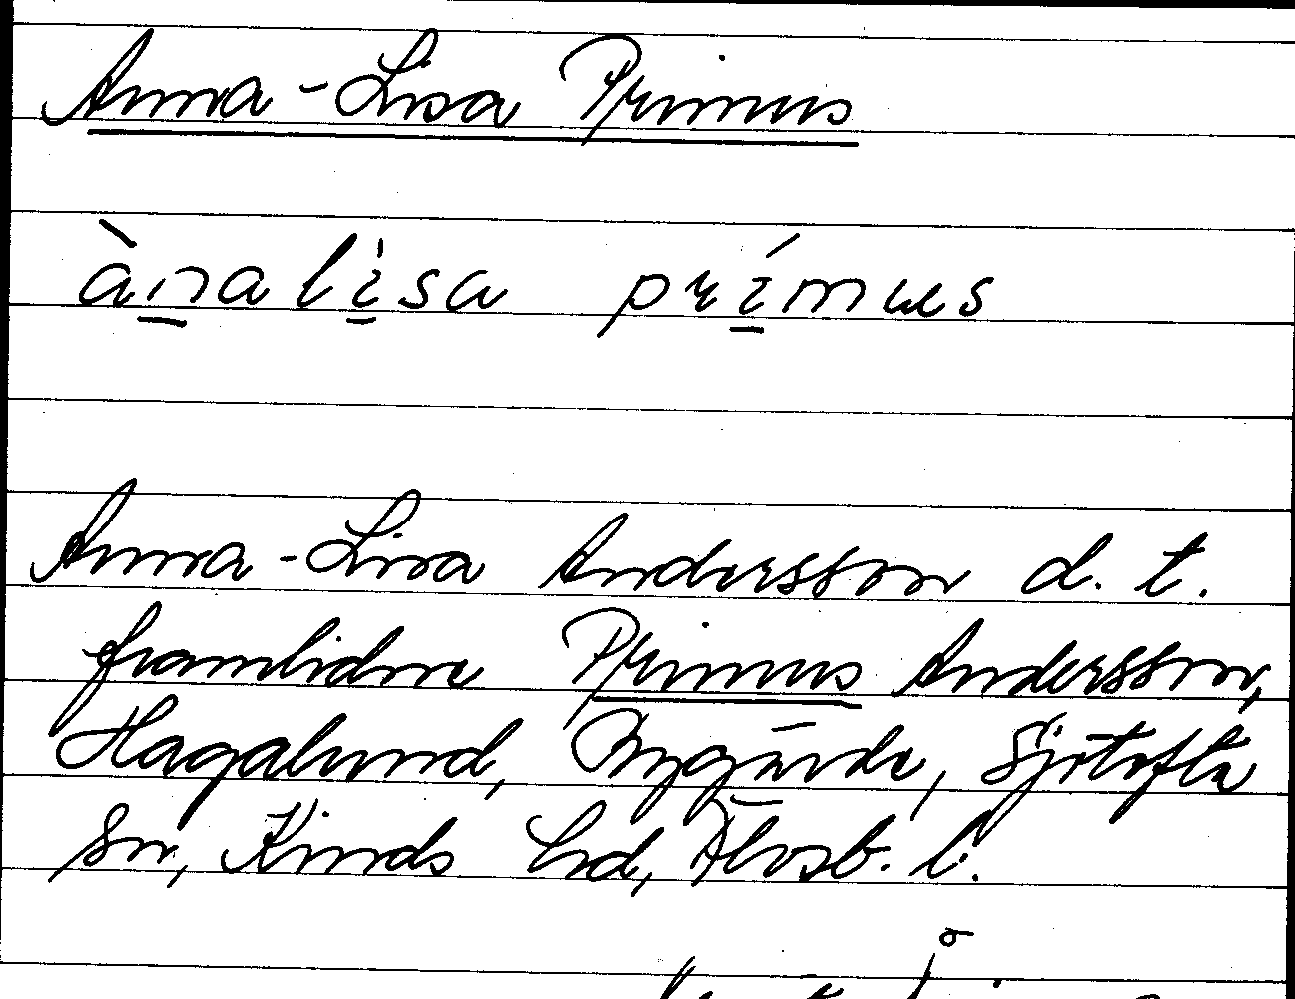 Anna-Lisa Primus
ànalisa prímus
Anna-Lisa Andersson d. t.
framlidne Primus Andersson,
Hagalund, Bygärde, Sjötofta
sn, Kinds hd, Älvsb. l.